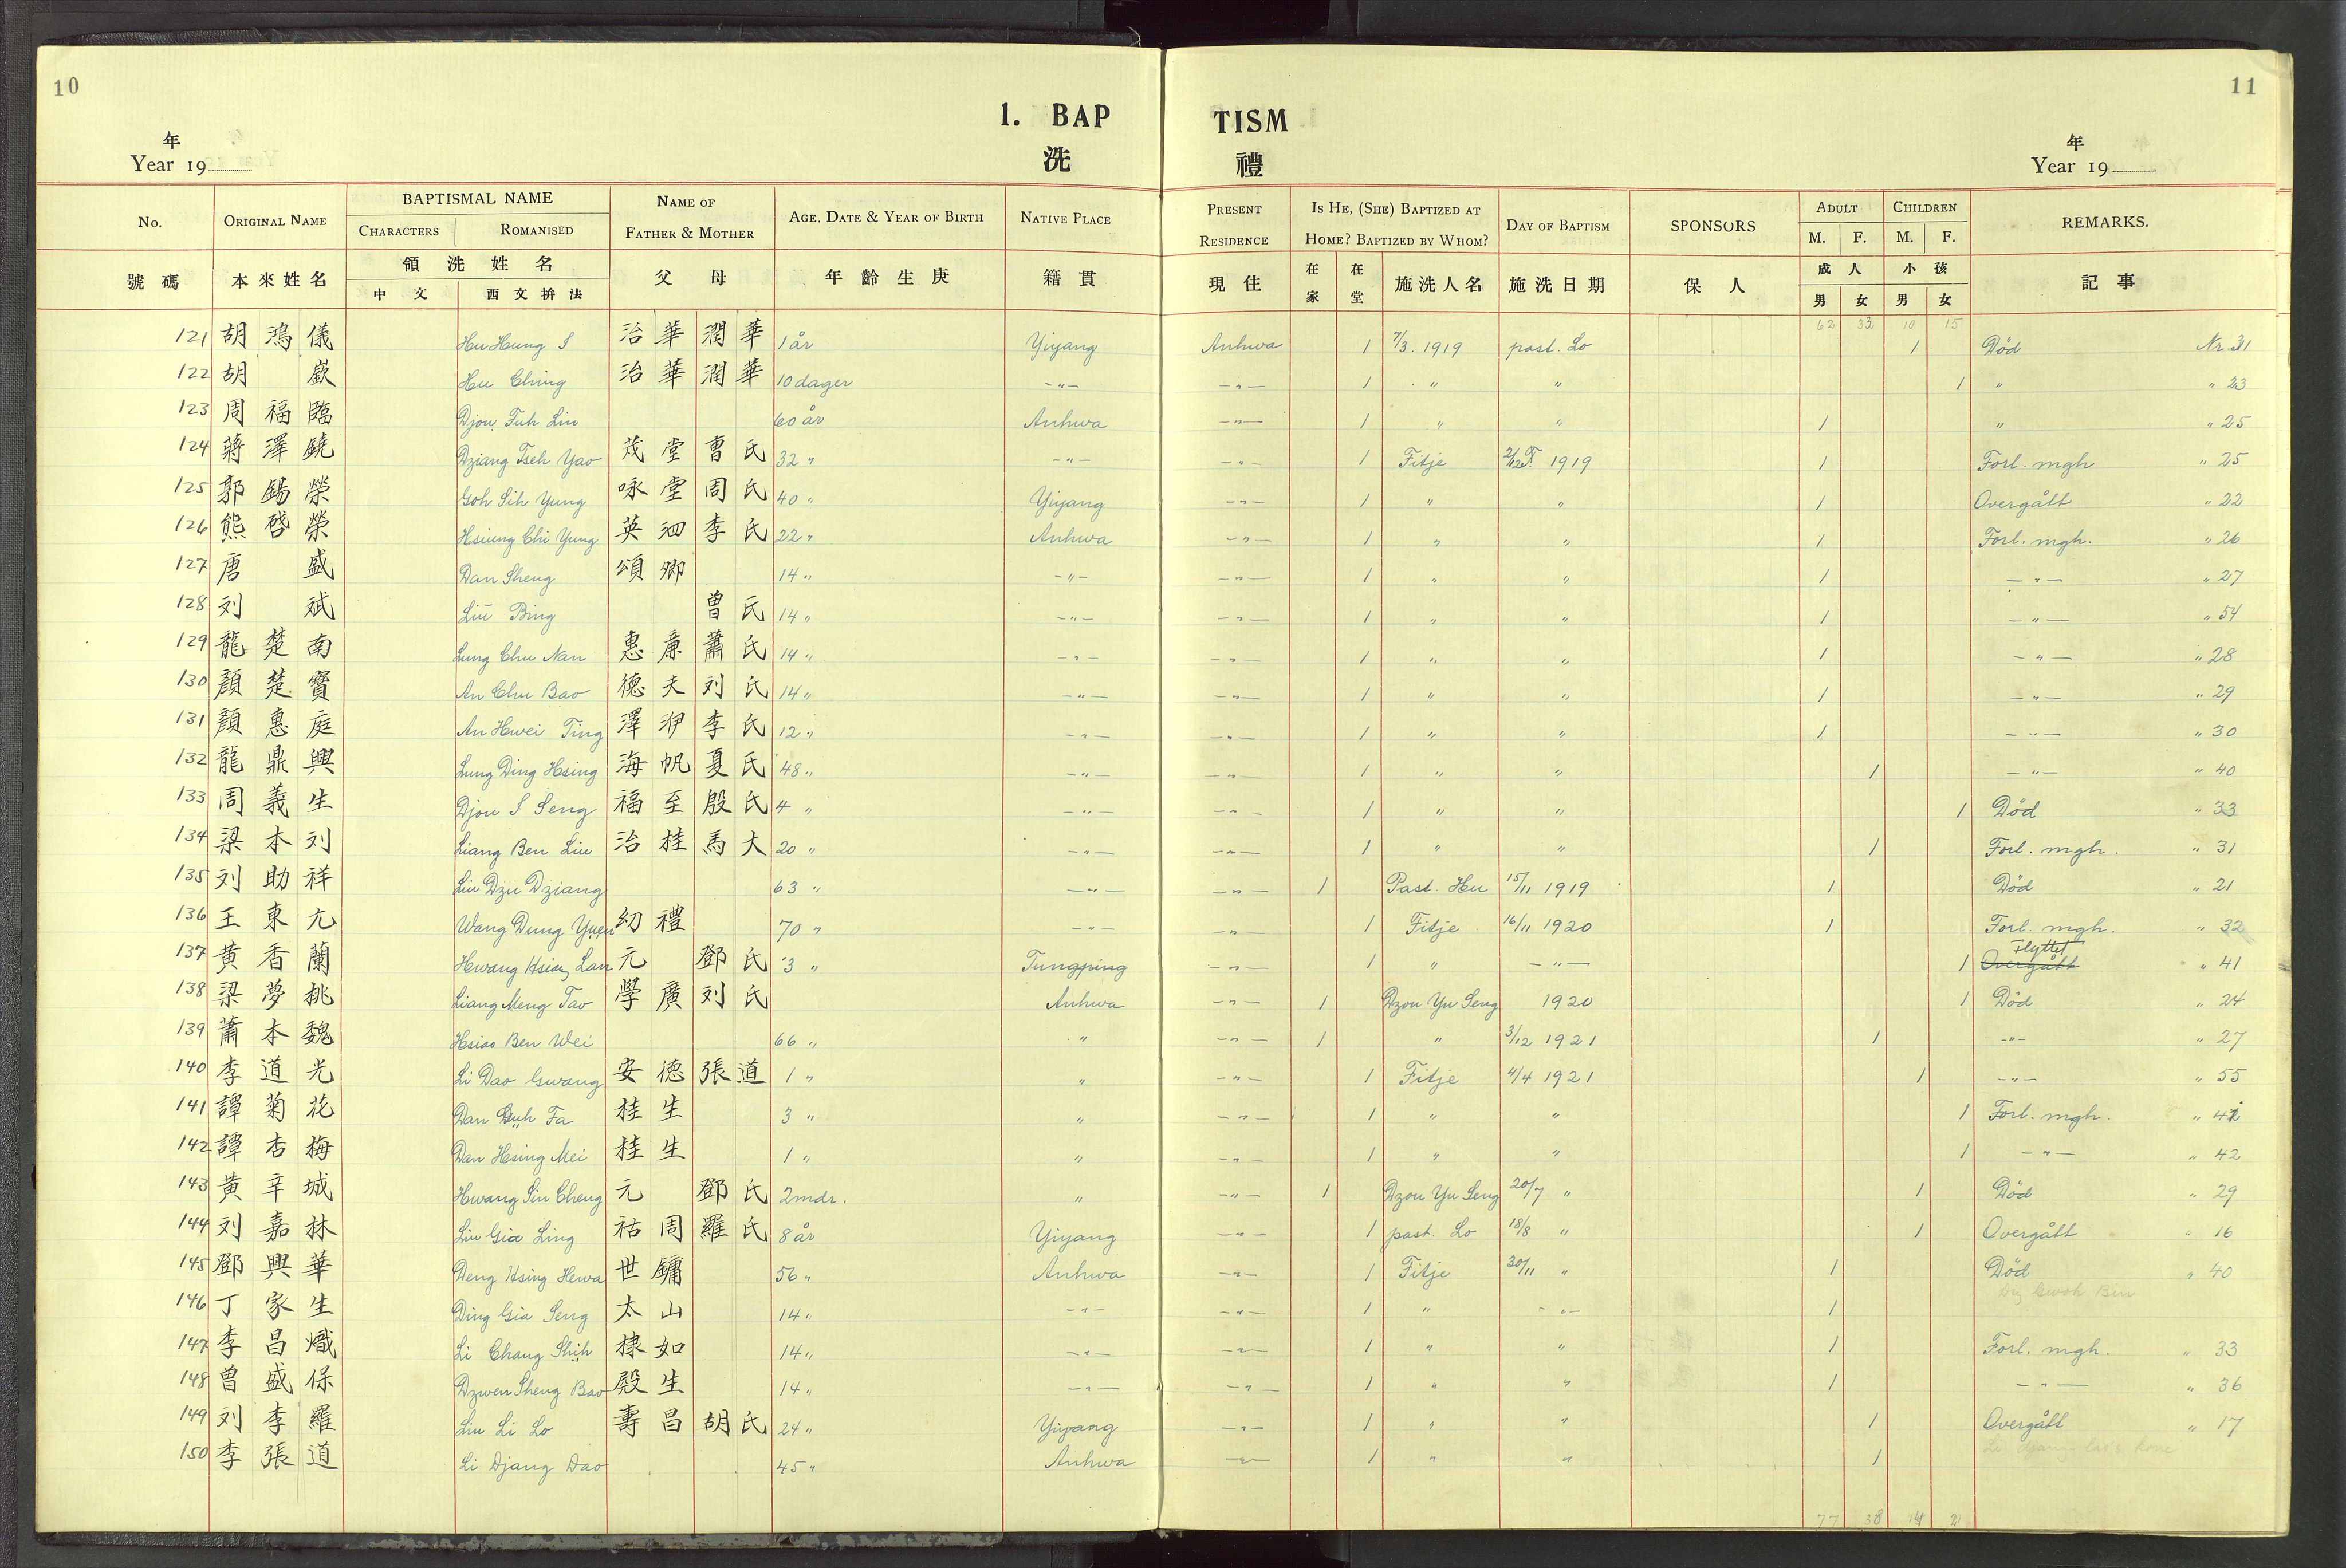 10
11
1. BAP TISM
洗 禮
年
Year 19
年
Year 19
No. ORIGINAL NAME BAPTISMAL NAME CHARACTERS ROMANISED NAME OF FATHER & MOTHER AGE. DATE & YEAR OF BIRTH NATIVE PLACE PRESENT RESIDENCE IS HE, (SHE) BAPTIZED AT HOME? BAPTIZED BY WHOM? DAY OF BAPTISM SPONSORS ADULT M. F. CHILDREN M. F. REMARKS.
號碼 本來姓名 領洗姓名 中文 西文拚法 父母 年齡生庚 籍貫 現住 在家 在堂 施洗人名 施洗日期 保人 成人 男 女 小孩 男 女 記事
62 33 10 15
121 胡鴻儀 Hu Hung I 治華 潤華 1 år Yiyang Anhwa 1 7/3. 1919 past. Lo 1 Död Nr. 31
122 胡嶔 Hu Ching 治華 潤華 10 dager -"- -"- 1 " " 1 " " 23
123 周福臨 Djou Fuh Lin 60 år Anhwa -"- 1 " " 1 " " 25
124 蔣澤鐃 Dziang Tseh Yao 茂堂 曹氏 32 " -"- -"- 1 Fitje 1919 1 Forl. mgh " 25
125 郭錫榮 Goh Sih Yung 咏堂 周氏 40 " Yiyang -"- 1 " " 1 Overgått " 22
126 熊啓榮 Hsiung Chi Yung 英泗 李氏 22 " Anhwa -"- 1 " " 1 Forl. mgh. " 26
127 唐盛 Dan Sheng 頌卿 14 " -"- -"- 1 " " 1 -"- " 27
128 刘斌 Liu Bing 曾氏 14 " -"- -"- 1 " " 1 -"- " 54
129 龍楚南 Lung Chu Nan 惠廉 蕭氏 14 " -"- -"- 1 " " 1 -"- " 28
130 顏楚寶 An Chu Bao 德夫 刘氏 14 " -"- -"- 1 " " 1 -"- " 29
131 顏惠庭 An Hwei Ting 澤 李氏 12 " -"- -"- 1 " " 1 -"- " 30
132 龍鼎興 Lung Ding Hsing 海帆 夏氏 48 " -"- -"- 1 " " 1 -"- " 40
133 周義生 Djou I Seng 福至 殷氏 4 " -"- -"- 1 " " 1 Död " 33
134 梁本刘 Liang Ben Liu 治桂 馬大 20 " -"- -"- 1 " " 1 Forl. mgh. " 31
135 刘助祥 Liu Dzu Dziang 63 " -"- -"- 1 Past. Hu 15/11 1919 1 Död " 21
136 王東亢 Wang Dung Yuen 幼禮 70 " -"- -"- 1 Fitje 16/11 1920 1 Forl. mgh. " 32
137 黃香蘭 Hwang Hsiang Lan 元 鄧氏 3 " Tungping -"- 1 " -"- 1 Overgått Flyttet " 41
138 梁夢桃 Liang Meng Tao 學廣 刘氏 Anhwa -"- 1 Dzou Yu Seng 1920 1 Död " 24
139 蕭本魏 Hsiao Ben Wei 66 " " -"- 1 " 3/12 1921 1 -"- " 27
140 李道光 Li Dao Gwang 安德 張道 1 " " -"- 1 Fitje 4/4 1921 1 -"- " 55
141 譚菊花 Dan Fa 桂生 3 " " -"- 1 " " 1 Forl. mgh. "
142 譚杏梅 Dan Hsing Mei 桂生 1 " " -"- 1 " " 1 -"- " 42
143 黃辛城 Hwang Sin Cheng 元 鄧氏 2 mdr. " -"- 1 Dzou Yu Seng 20/7 " 1 Död " 29
144 刘嘉林 Liu Gia Ling 祜周 羅氏 8 år Yiyang -"- 1 past. Lo 18/8 " 1 Overgått " 16
145 鄧興華 Deng Hsing Hewa 世鏞 56 " Anhwa -"- 1 Fitje 30/11 " 1 Död " 40
146 丁家生 Ding Gia Seng 太山 14 " -"- -"- 1 " -"- 1
147 李昌熾 Li Chang Shih 棣如 14 " -"- -"- 1 " " 1 Forl. mgh. " 33
148 曾盛保 Dzwen Sheng Bao 殿生 14 " -"- -"- 1 " " 1 -"- " 36
149 刘李羅 Liu Li Lo 壽昌 胡氏 24 " Yiyang -"- 1 " " 1 Overgått " 17
150 李張道 Li Djang Dao 45 " Anhwa -"- 1 " " 1
77 38 14 21